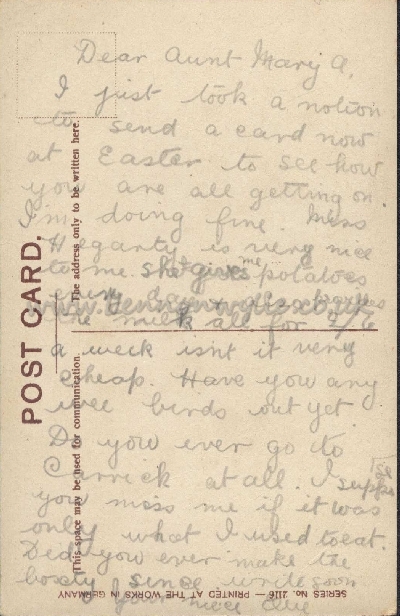 Dear Aunt Mary A,
I just took a notion
to send a card now
at Easter to see how
you are all getting on
I'm doing fine. Miss
Hegarty is very nice
to me. she gives me potatoes
every day
milk all for 2/6
a week isnt it very
cheap. Have you any
wee birds out yet
Do you ever go to
Carrick at all. I suppose
you miss me if it was
only what I used to eat.
Did you ever make the
boxty since write soon
your niece
POST CARD.
This space may be used for communication.
The address only to be written here.
SERIES No. 2116 — PRINTED AT THE WORKS IN GERMANY